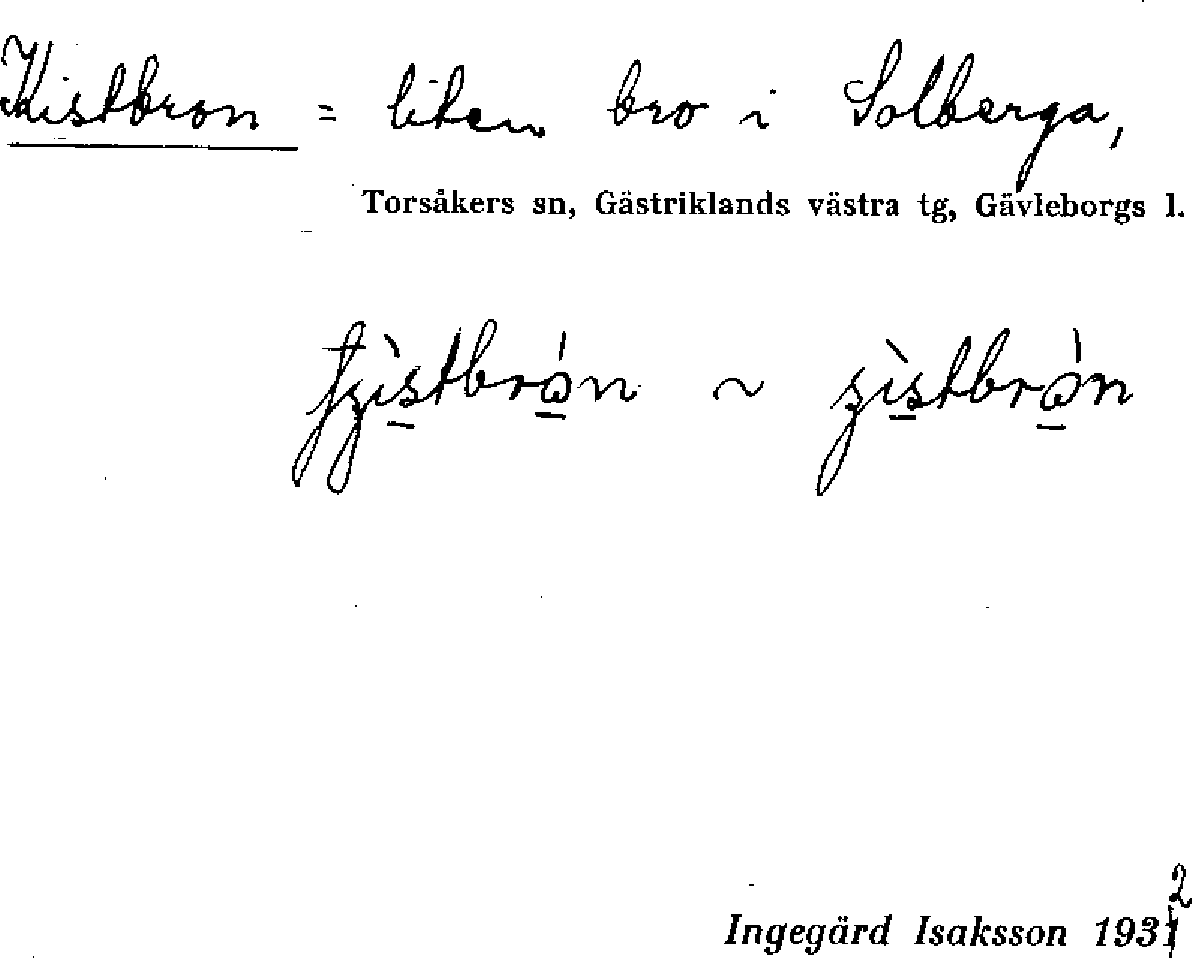 Kistbron = liten bro i Solberga,
Torsåkers sn, Gästriklands västra tg, Gävleborgs l.
~
Ingegärd Isaksson 1932